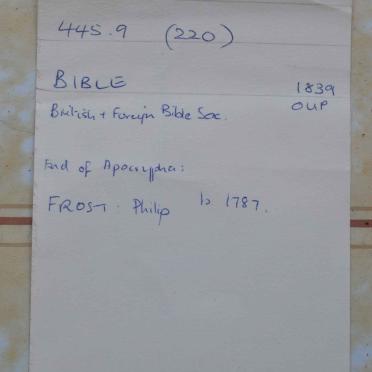 445.9 (220)
BIBLE 1839
British + Foreign Bible Soc. OUP
End of Apocrypha:
FROST. Philip b 1787.